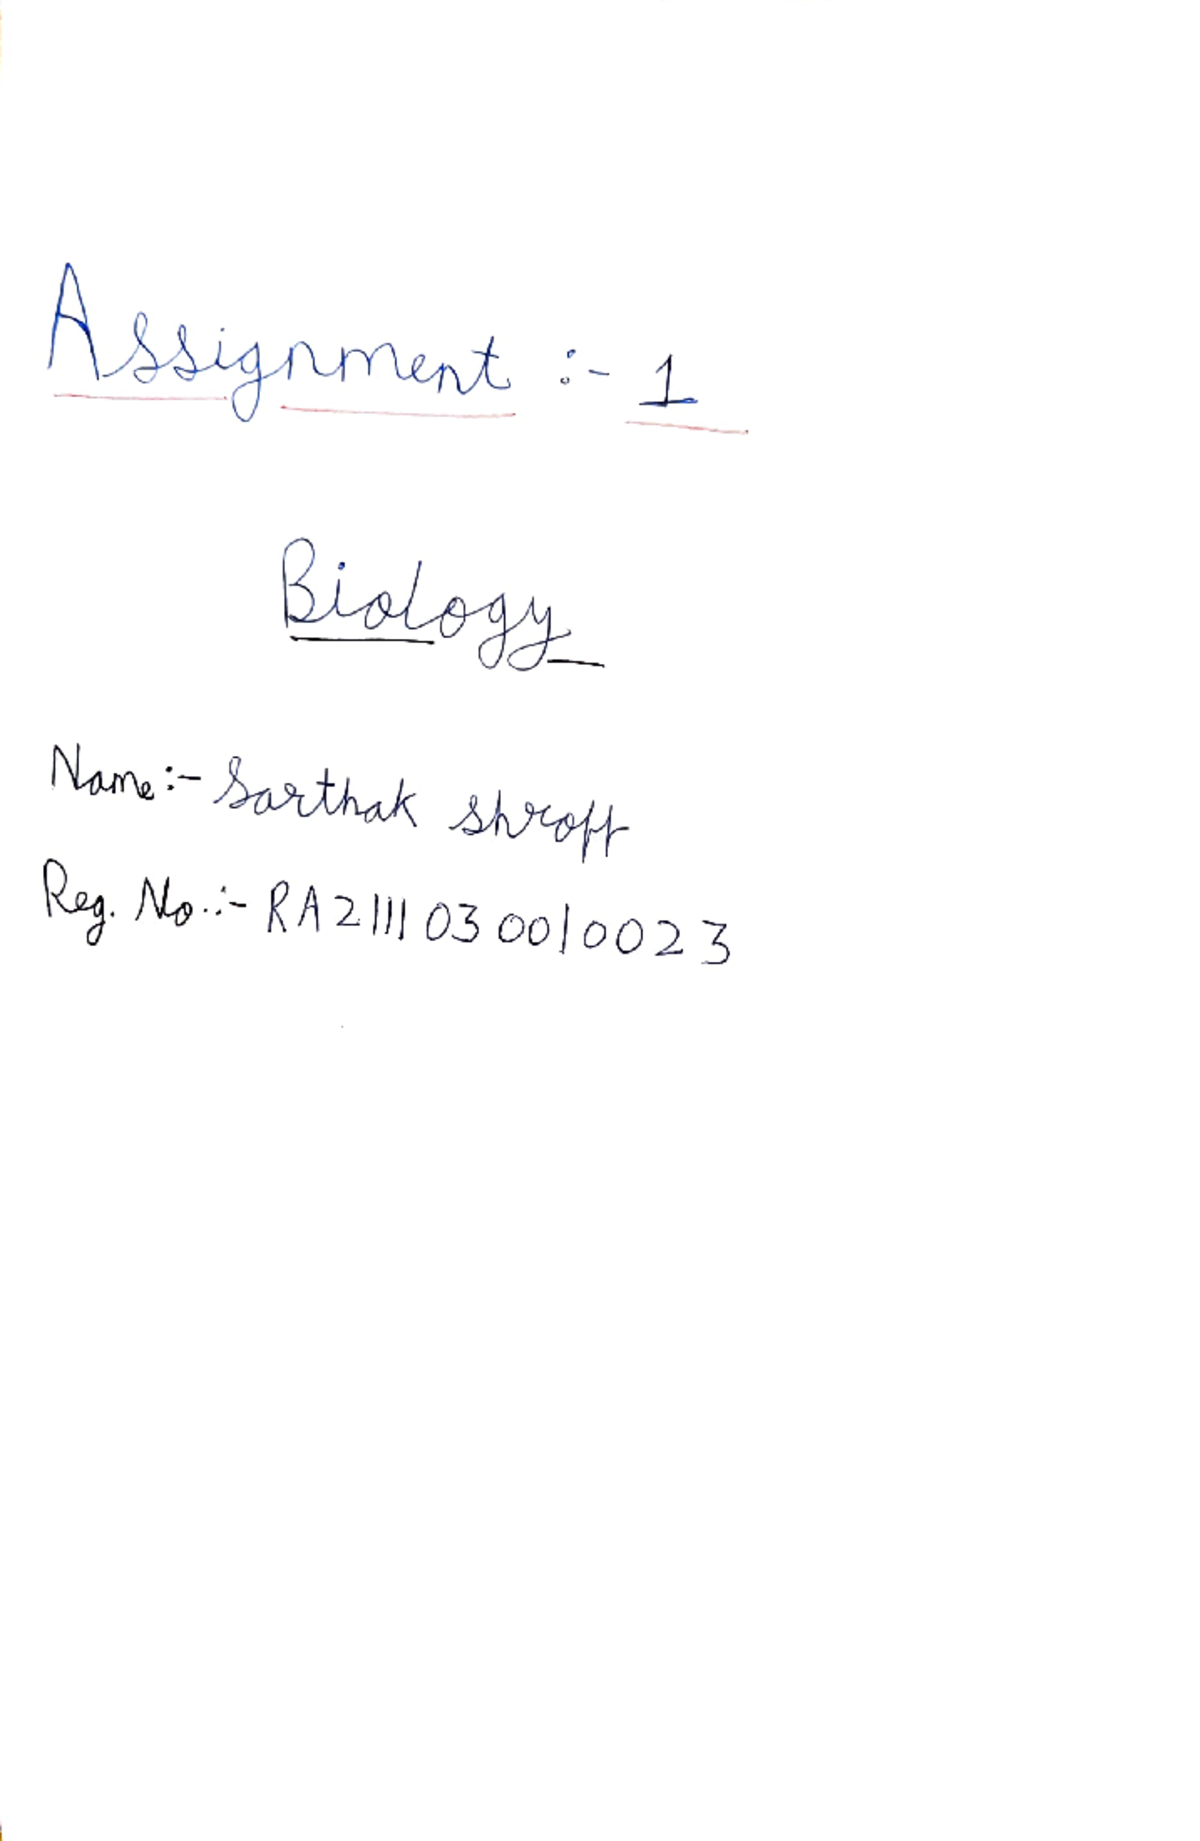 Assignment :- 1
Biology
Name:- Sarthak shroff
Reg. No.:- RA2111030010023